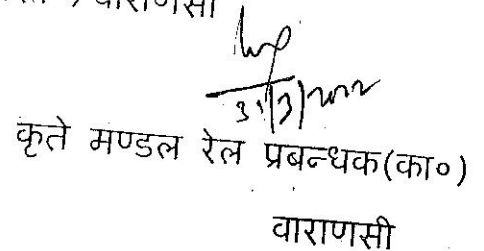 वाराणसी
31/3/2022
कृते मण्डल रेल प्रबन्धक(का०)
वाराणसी